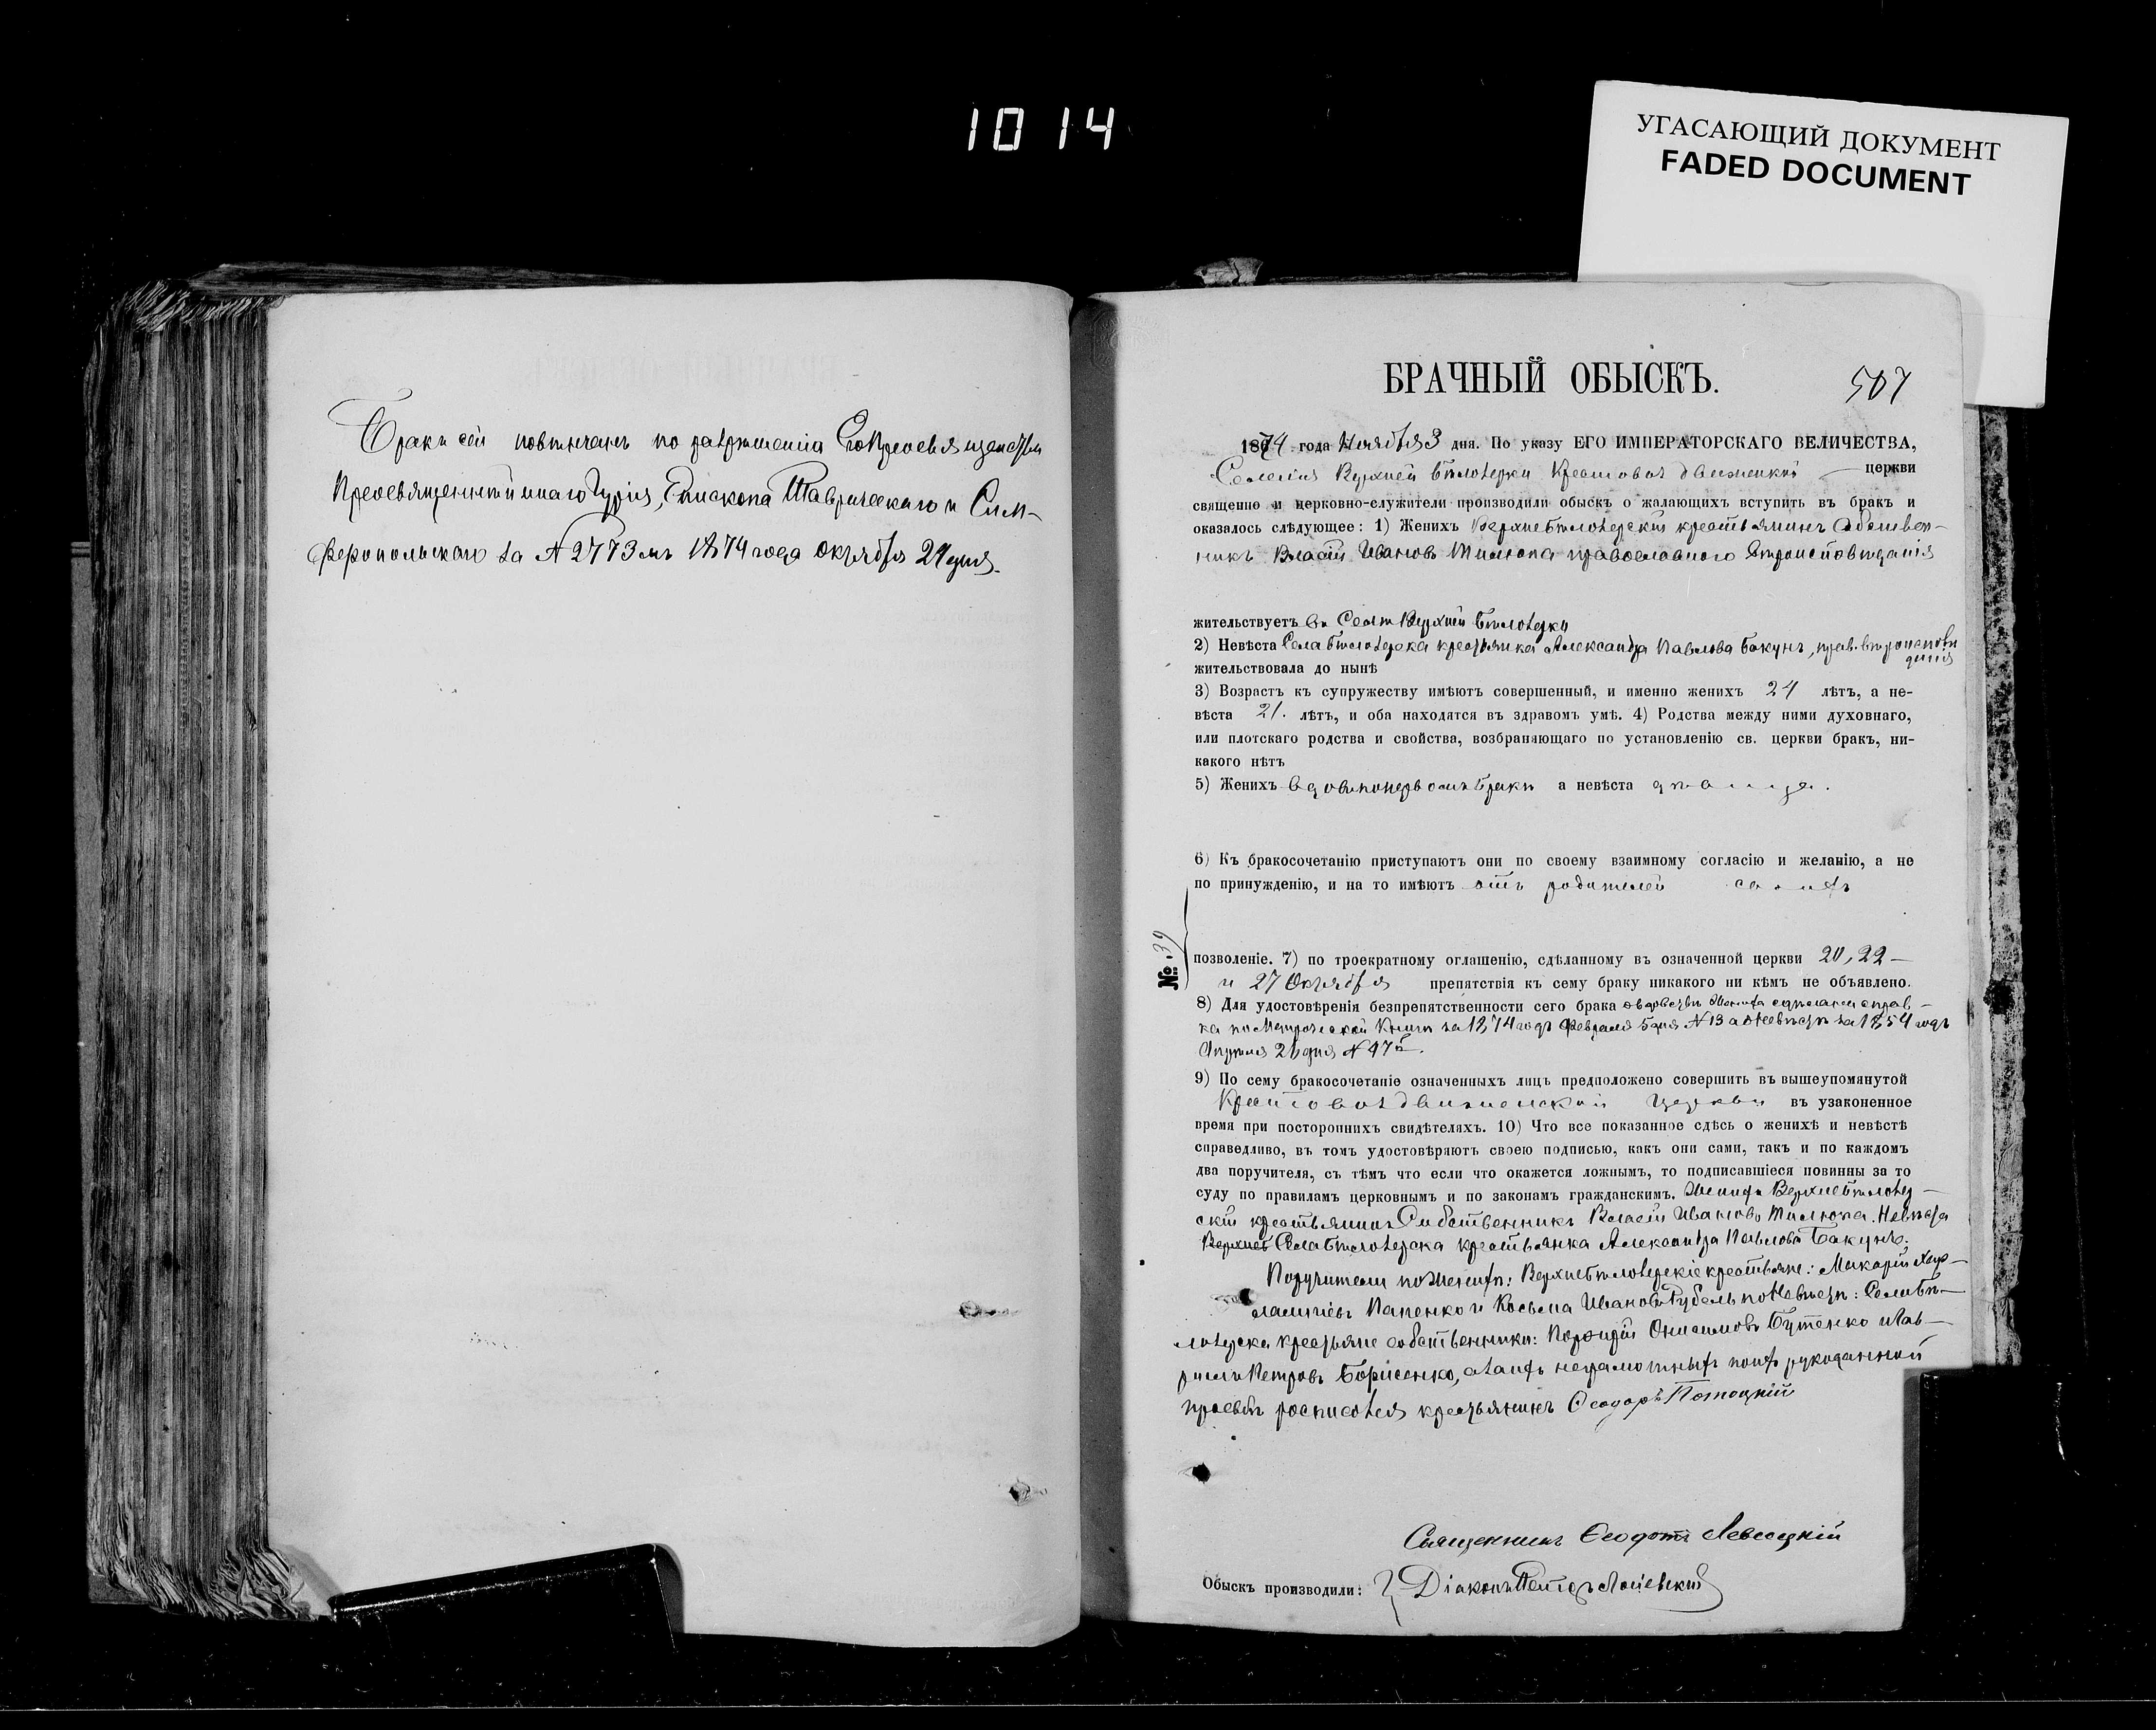 1014
УГАСАЮЩИЙ ДОКУМЕНТ
FADED DOCUMENT
Бракъ сей повѣнчанъ по разрѣшенію Его Преосвященства
Преосвященнѣйшаго Гурія, Епископа Таврическаго и Сим-
феропольскаго за № 2773мъ 1874 года Октября 24 дня.
БРАЧНЫЙ ОБЫСКЪ.
507
1874 года Ноября 3 дня. По указу ЕГО ИМПЕРАТОРСКАГО ВЕЛИЧЕСТВА,
Селенія Верхней Бѣлозерки Крестовоздвиженской церкви
священно и церковно-служители производили обыскъ о жалающихъ вступить въ бракъ и
оказалось слѣдующее: 1) Женихъ Верхнебѣлозерскій крестьянинъ Собствен-
никъ Власій Ивановъ православнаго Вѣроисповѣданія
жительствуетъ въ Селѣ Верхней Бѣлозерки
2) Невѣста Села Бѣлозерска крестьянка Александра Павлова Бакунъ, прав. вѣроисповѣ
дания
жительствовала до нынѣ
3) Возрастъ къ супружеству имѣютъ совершенный, и именно женихъ 24 лѣтъ, а не-
вѣста 21. лѣтъ, и оба находятся въ здравомъ умѣ. 4) Родства между ними духовнаго,
или плотскаго родства и свойства, возбраняющаго по установленію св. церкви бракъ, ни-
какого нѣтъ
5) Женихъ вдовъ по первомъ бракѣ а невѣста дѣвица.
6) Къ бракосочетанію приступаютъ они по своему взаимному согласію и желанію, а не
по принужденію, и на то имѣютъ отъ родителей своихъ
№ 39
позволеніе. 7) по троекратному оглашенію, сдѣланному въ означенной церкви 20, 22
и 27 Октября препятствія къ сему браку никакого ни кѣмъ не объявлено.
8) Для удостовѣренія безпрепятственности сего брака о вдовствѣ Жениха сдѣлана справ-
ка по Метрической Книгѣ за 1874 годъ Февраля 5 дня № 13 а о Невѣстѣ за 1854 годъ
Апрѣля 21 дня № 47й.
9) По сему бракосочетаніе означенныхъ лицъ предположено совершить въ вышеупомянутой
Крестовоздвиженской церкви въ узаконенное
время при постороннихъ свидѣтеляхъ. 10) Что все показанное сдѣсь о женихѣ и невѣстѣ
справедливо, въ томъ удостовѣряютъ своею подписью, какъ они сами, такъ и по каждомъ
два поручителя, съ тѣмъ что если что окажется ложнымъ, то подписавшіеся повинны за то
суду по правиламъ церковнымъ и по законамъ гражданскимъ. Женихъ Верхнебѣлозер-
скій крестьянинъ Собственникъ Власій Ивановъ Невѣста
Села Бѣлозерска крестьянка Александра Павлова Бакунъ.
Поручители по Женихѣ: Верхнебѣлозерскіе крестьяне: Макарій Хар-
лампіевъ Папенко и Косьма Ивановъ Рубель по Невѣстѣ: Села Бѣ-
лозерска крестьяне собственники: Порфирій Онисимовъ Бутенко и Лав-
рентій Петровъ Борисенко, а за нихъ неграмотныхъ по ихъ рукоданной
просьбѣ росписался крестьянинъ Ѳеодоръ Потоцкій
Священникъ Ѳеодотъ Левицкій
Обыскъ производили: Діаконъ Петръ